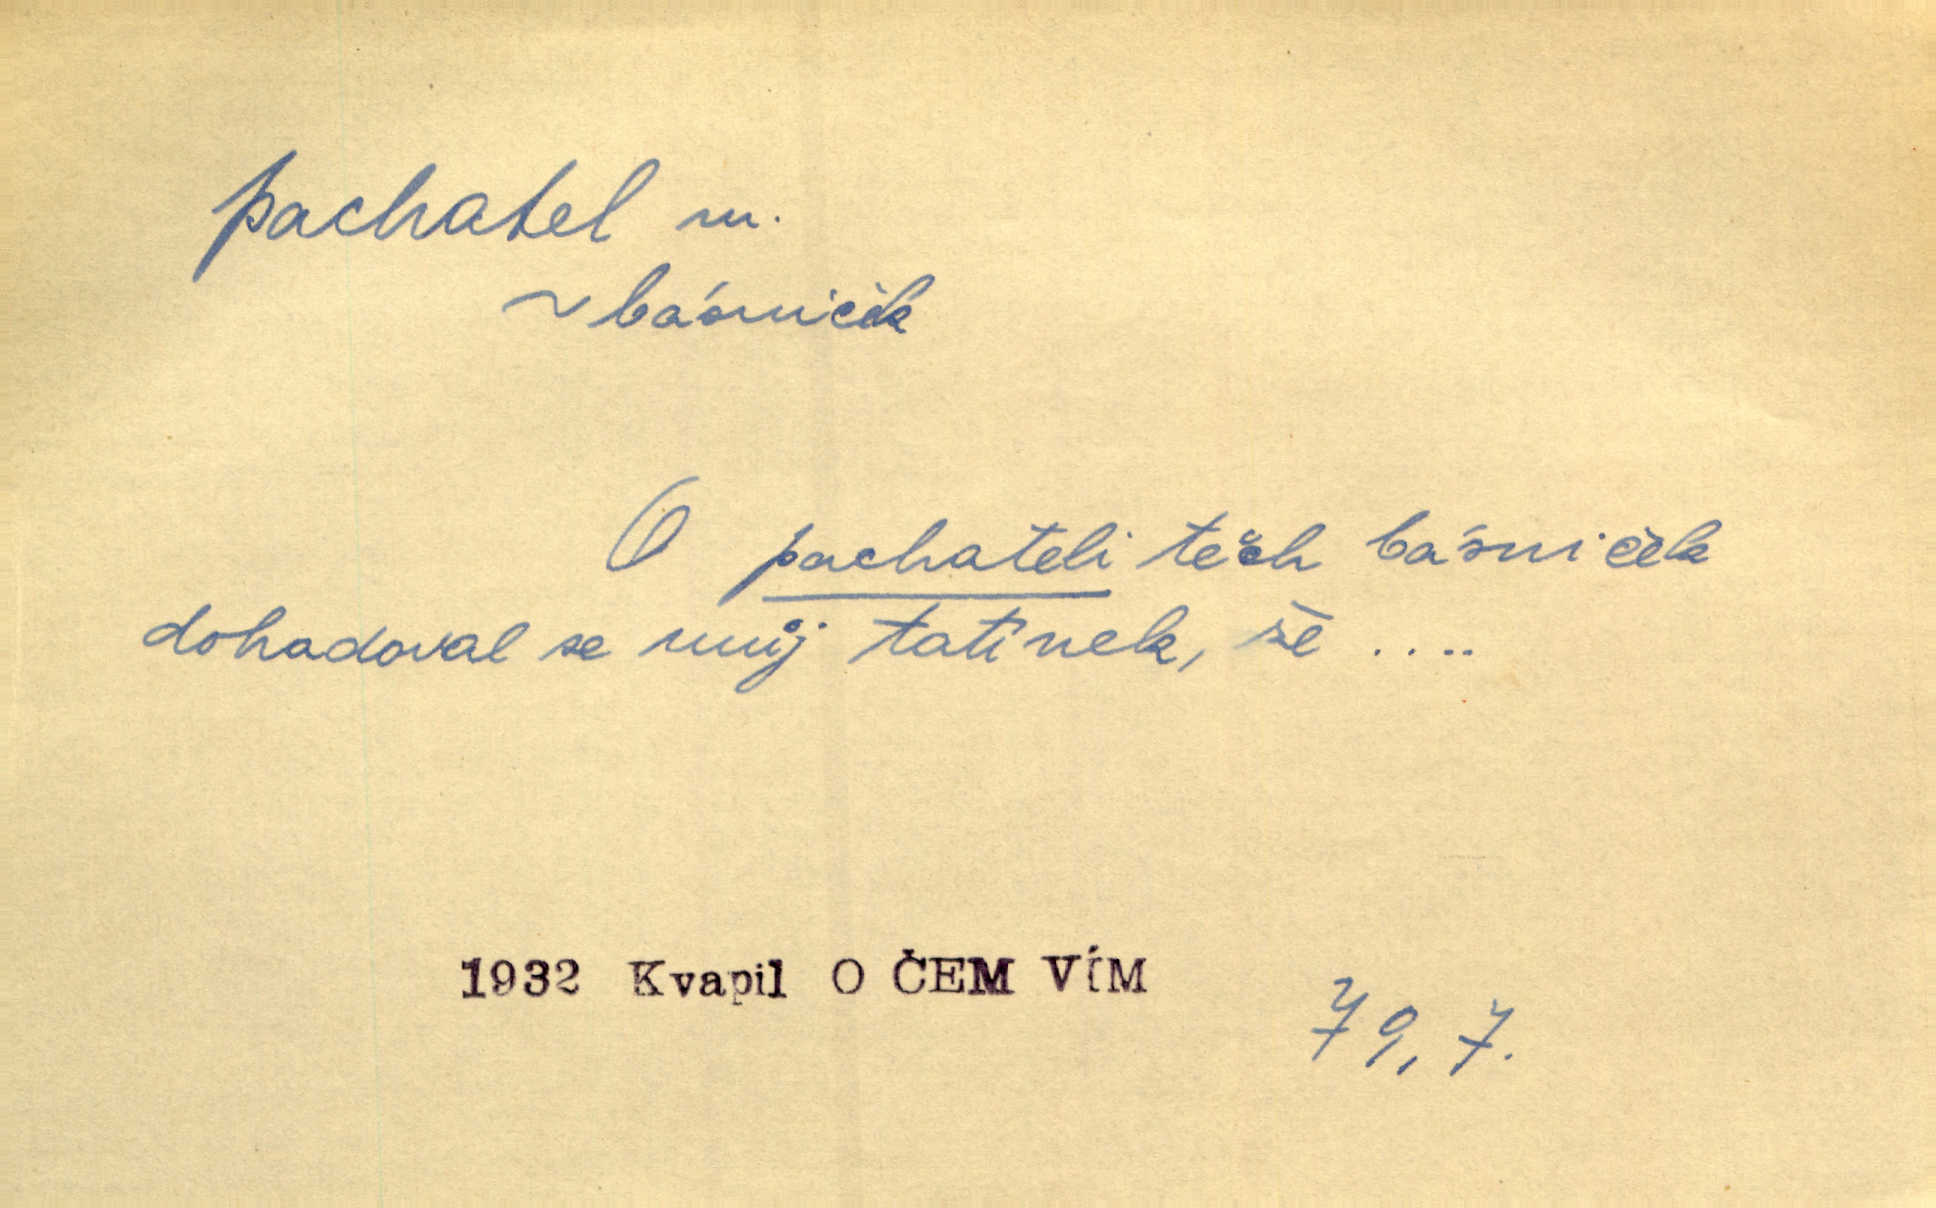 pachatel m.
~ básniček
O pachateli těch básniček
dohadoval se můj tatínek, že ....
1932 Kvapil O ČEM VÍM
79, 7.